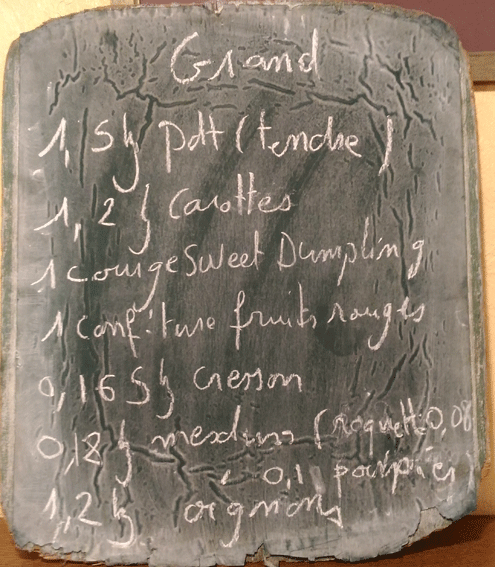 Grand
1,5 kg pdt (tendre)
1,2 kg Carottes
1 courge Sweet Dumpling
1 confiture fruits rouges
0,165 kg cresson
0,18 kg mesclun (roquette:0,08
, 0,1 pourpier)
1,2 kg oignons